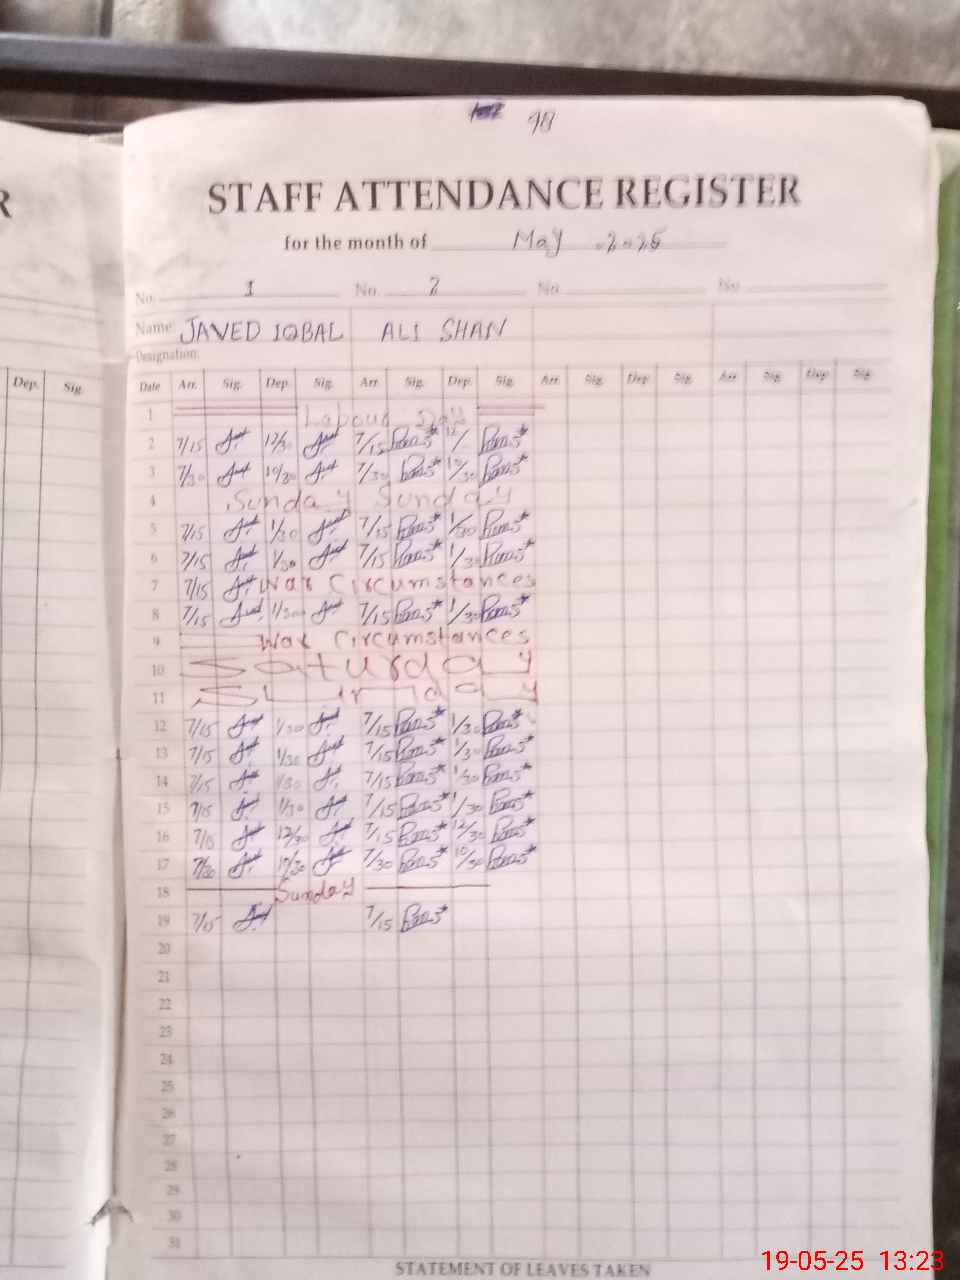 98
STAFF ATTENDANCE REGISTER
for the month of May 2025
No. 1 No. 2 No. No.
Name: JAVED IQBAL ALI SHAN
Designation:
Dep. Sig.
Date Arr. Sig. Dep. Sig. Arr. Sig. Dep. Sig. Arr. Sig. Dep. Sig. Arr. Sig. Dep. Sig.
1 Labour Day
2 7/15 12/30 7/15 12/
3 7/30 10/30 7/30 10/30
4 Sunday Sunday
5 7/15 1/30 7/15 1/30
6 7/15 1/30 7/15 1/30
7 7/15 War Circumstances
8 7/15 1/30 7/15 1/30
9 War Circumstances
10 Saturday
11 Sunday
12 7/15 1/30 7/15 1/30
13 7/15 1/30 7/15 1/30
14 7/15 1/30 7/15 1/30
15 7/15 1/30 7/15 1/30
16 7/15 12/30 7/15 12/30
17 7/30 10/30 7/30 10/30
18 Sunday
19 7/15 7/15
20
21
22
23
24
25
26
27
28
29
30
31
STATEMENT OF LEAVES TAKEN
19-05-25 13:23